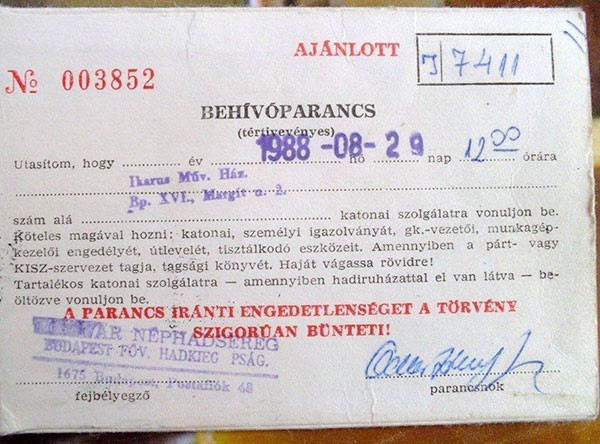 AJÁNLOTT
J 7411
№ 003852
BEHÍVÓPARANCS
(tértivevényes)
Utasítom, hogy .......... év 1988 -08- 29 hó .......... nap 12 00 órára
Ikarus Műv. Ház.
Bp. XVI., Margit u. 2.
szám alá .......... katonai szolgálatra vonuljon be.
Köteles magával hozni: katonai, személyi igazolványát, gk.-vezetői, munkagép-
kezelői engedélyét, útlevelét, tisztálkodó eszközeit. Amennyiben a párt- vagy
KISZ-szervezet tagja, tagsági könyvét. Haját vágassa rövidre!
Tartalékos katonai szolgálatra — amennyiben hadiruházattal el van látva — be-
öltözve vonuljon be.
A PARANCS IRÁNTI ENGEDETLENSÉGET A TÖRVÉNY
SZIGORÚAN BÜNTETI!
NÉPHADSEREG
BUDAPEST FŐV. HADKIEG PSÁG.
1675 Budapest, Postafiók 48
fejbélyegző
parancsnok